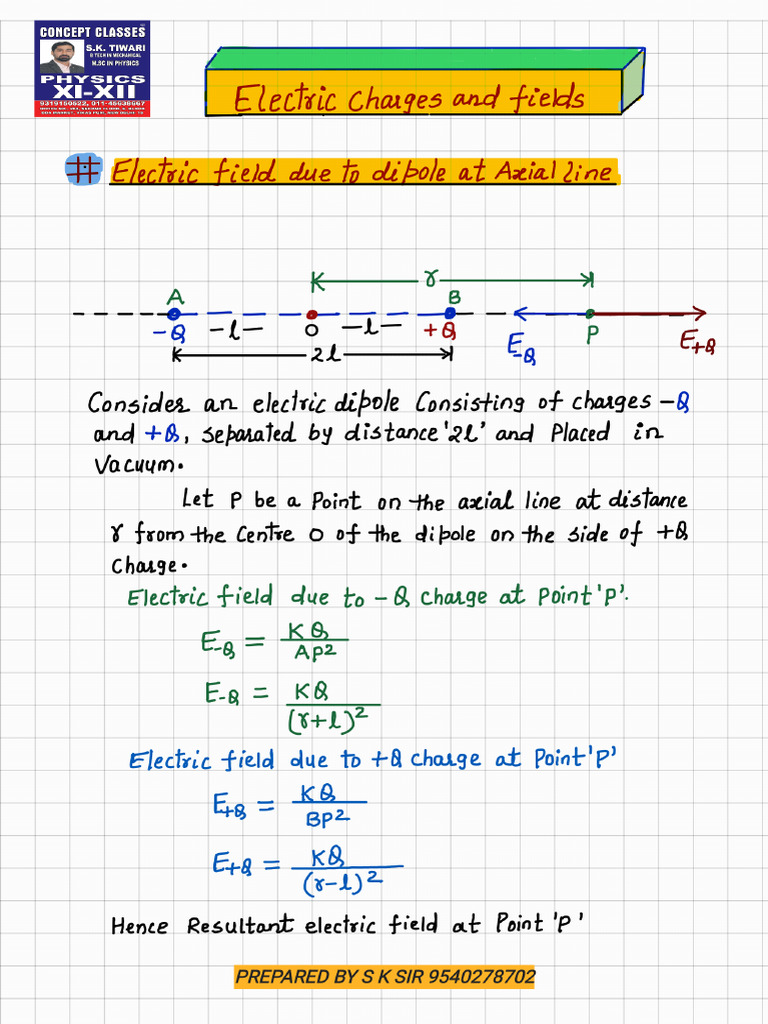 CONCEPT CLASSES
S.K. TIWARI
B TECH IN MECHANICAL
M.SC IN PHYSICS
PHYSICS
XI-XII
9319160622, 011-45638667
Electric Charges and fields
# Electric field due to dipole at Axial line
r
A B
-Q -l- O -l- +Q P E-Q E+Q
2l
Consider an electric dipole Consisting of charges -Q
and +Q, separated by distance '2l' and Placed in
Vacuum.
Let P be a Point on the axial line at distance
r from the Centre O of the dipole on the side of +Q
Charge.
Electric field due to -Q charge at Point 'P'.
E-Q = KQ / AP²
E-Q = KQ / (r+l)²
Electric field due to +Q charge at Point 'P'
E+Q = KQ / BP²
E+Q = KQ / (r-l)²
Hence Resultant electric field at Point 'P'
PREPARED BY S K SIR 9540278702